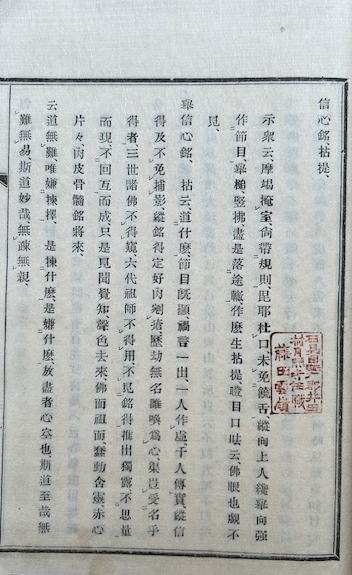 信心銘拈提、
示衆云、摩竭掩室、尚帶規則、毘耶杜口、未免饒舌、縱向上人、纔擧向强
作節目、擧槌竪拂、盡是落途轍、作麼生拈提、瞪目口呿云、佛眼也覷不
見、
擧信心銘、拈云、道什麼、節目旣顯、禍害一出、一人作虛、千人傳實、縱信
得及、不免捕影、縱銘得定、好肉剜瘡、歷劫無名、誰喚爲心、渠豈愛名乎
得者、三世諸佛不得窺、六代祖師不得用、不銘得推出、獨露不思量
而現、不回互而成、只是見聞覺知、聲色去來、佛而祖而、蠢動含靈、赤心
片々、肉皮骨髓、銘將來、
云道無難、唯嫌揀擇、是揀什麼、是嫌什麼、放盡者心空也、斯道至哉無
難無易、斯道妙哉、無疎無親、
藤田